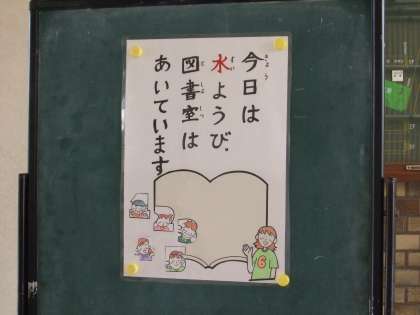 今日は
水ようび.
図書室は
あいています